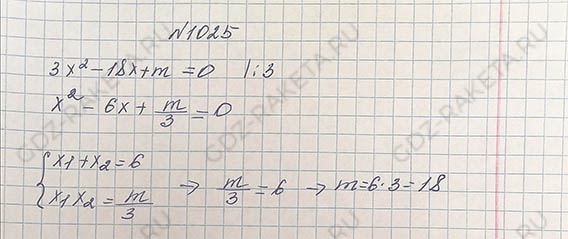 №1025
3x² - 18x + m = 0 |:3
x² - 6x + m/3 = 0
{x1 + x2 = 6
{x1x2 = m/3 → m/3 = 6 → m = 6·3 = 18
GDZ-RAKETA.RU